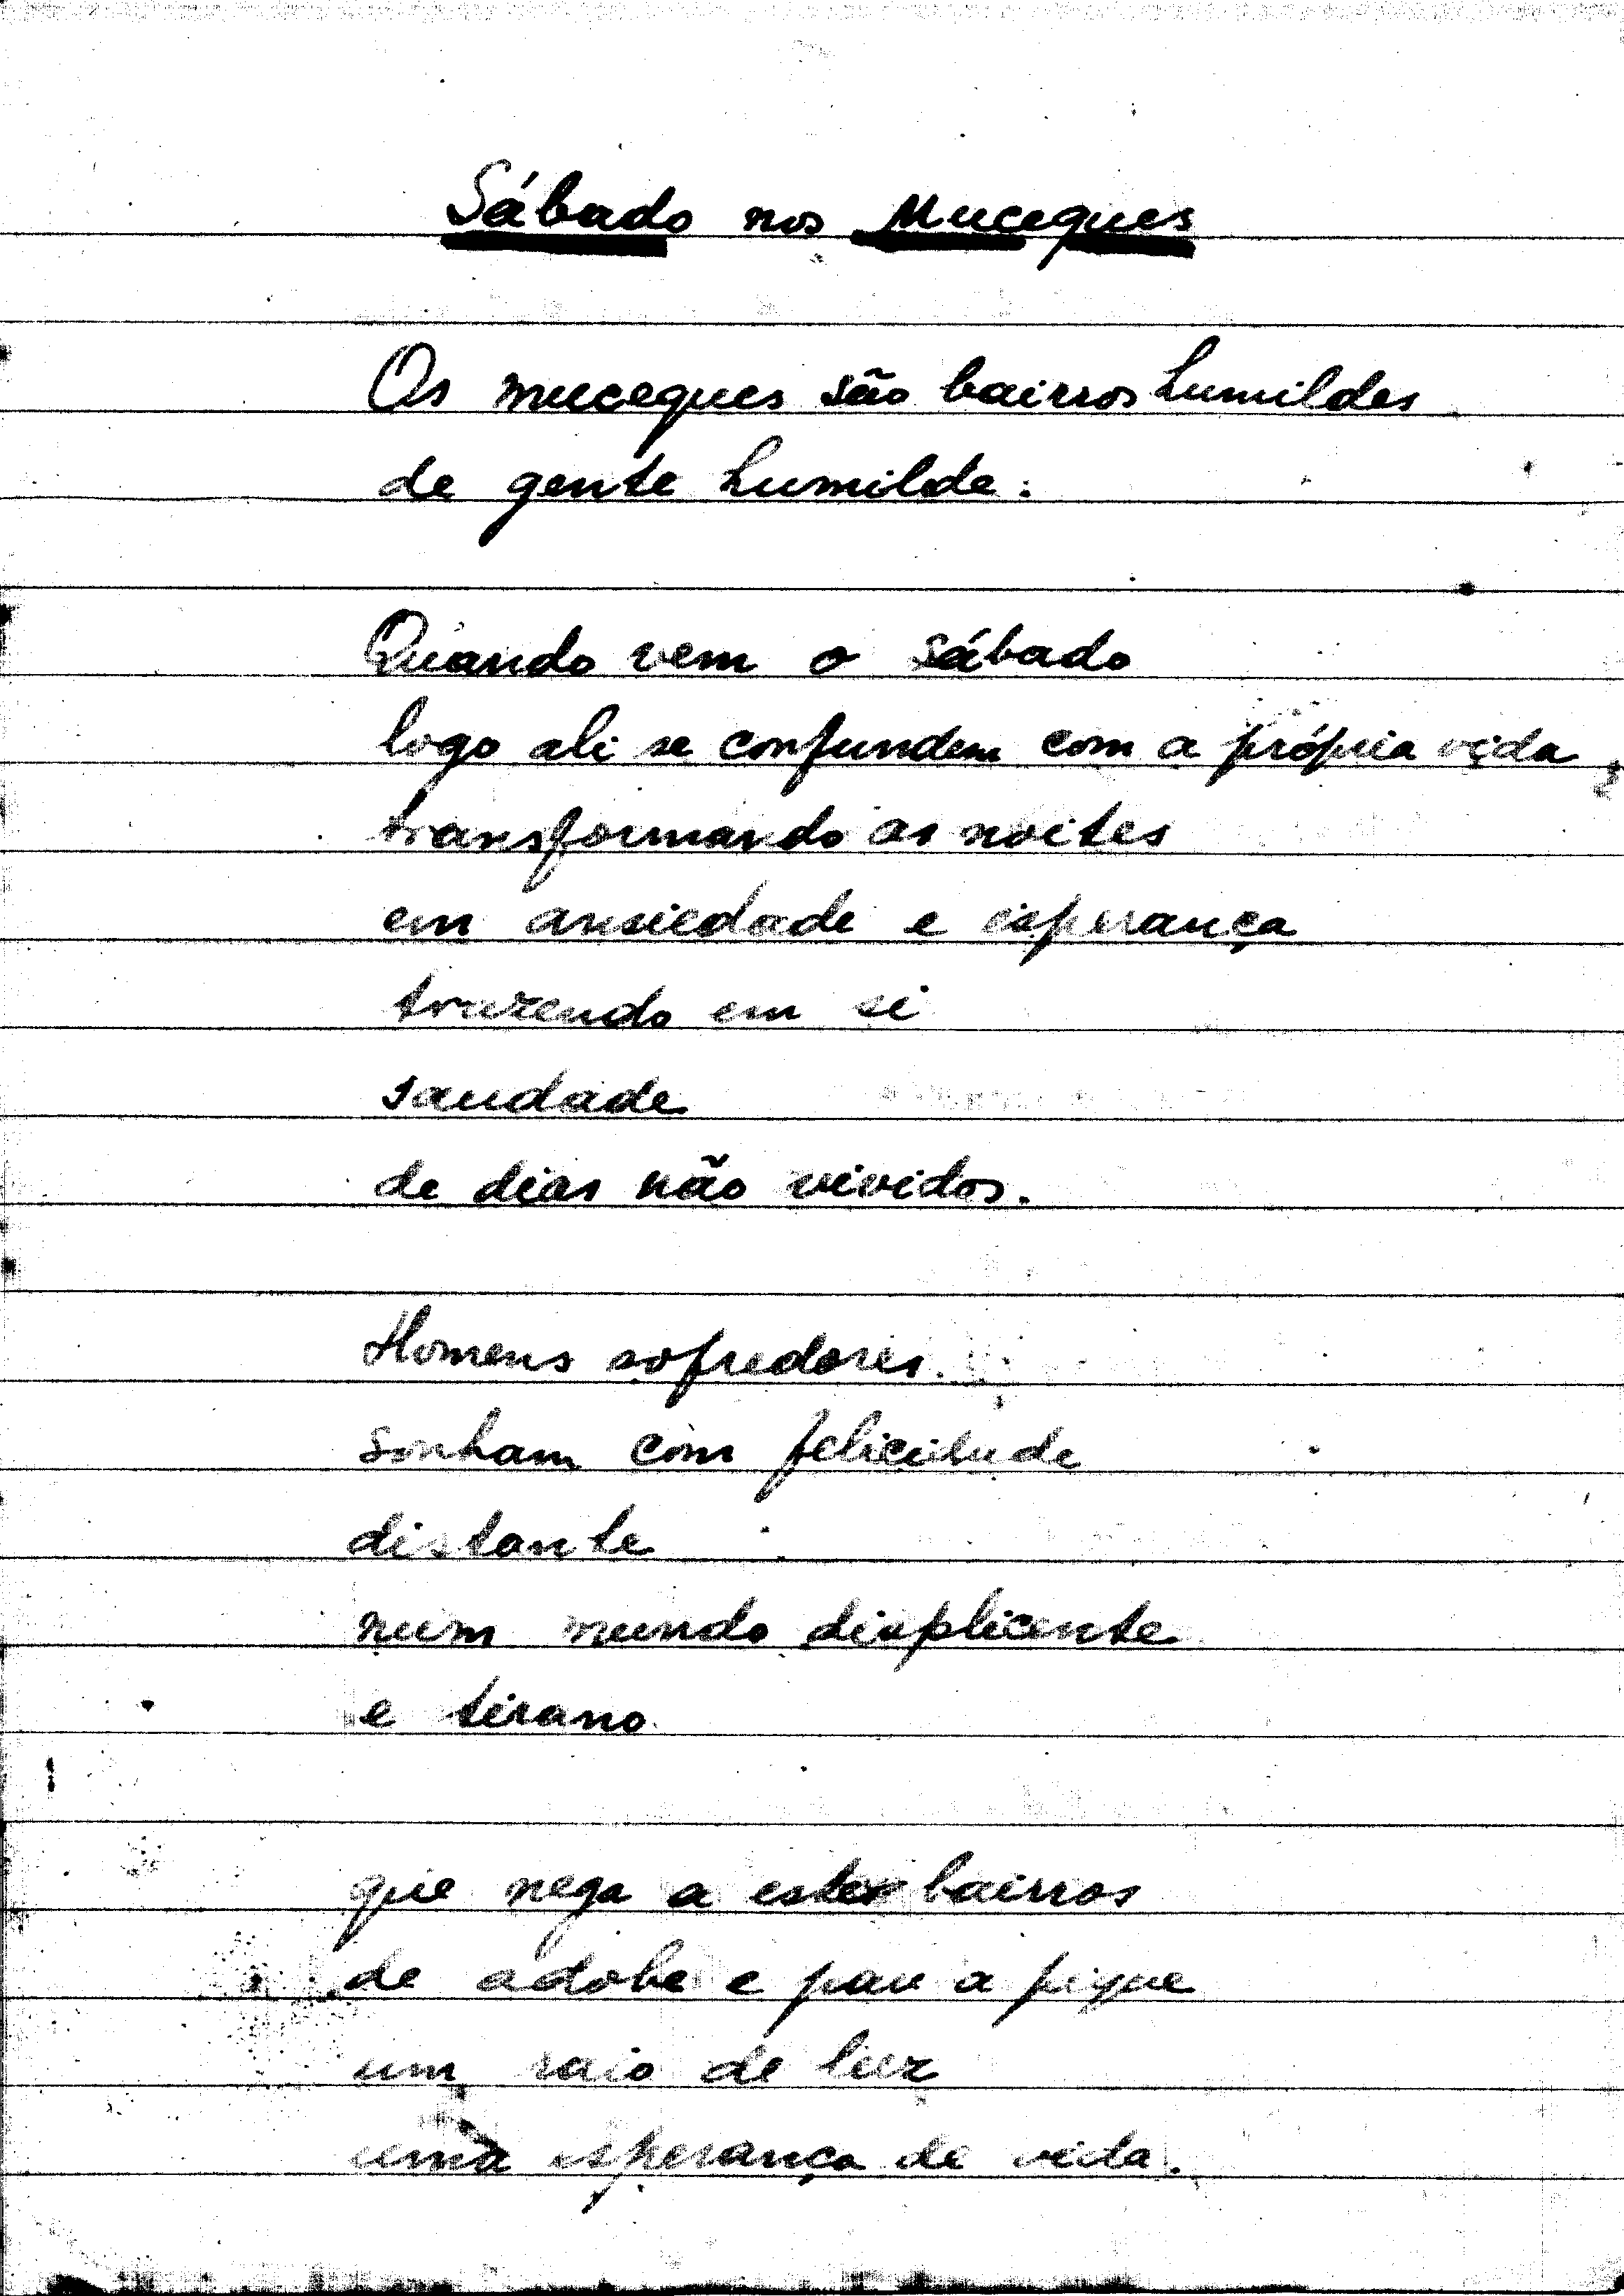 Sábado nos Muceques
Os muceques são bairros humildes
de gente humilde.
Quando vem o sábado
logo ali se confundem com a própria vida
transformando as noites
em ansiedade e esperança
trazendo em si
saudade
de dias não vividos.
Homens sofredores
sonham com felicidade
distante
num mundo displicente
e tirano
que nega a estes bairros
de adobe e pau a pique
um raio de luz
uma esperança de vida.